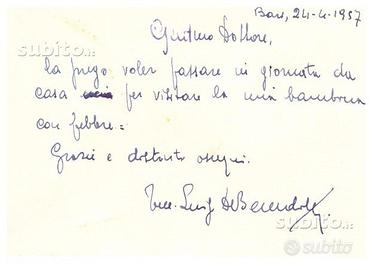 Bari, 24-4-1957
Gent.mo Dottore,
la prego voler passare in giornata da
casa per visitare la mia bambina
con febbre =
Grazie e distinti ossequi.
Luigi De Benedictis
subito.it
subito.it
subito
subito